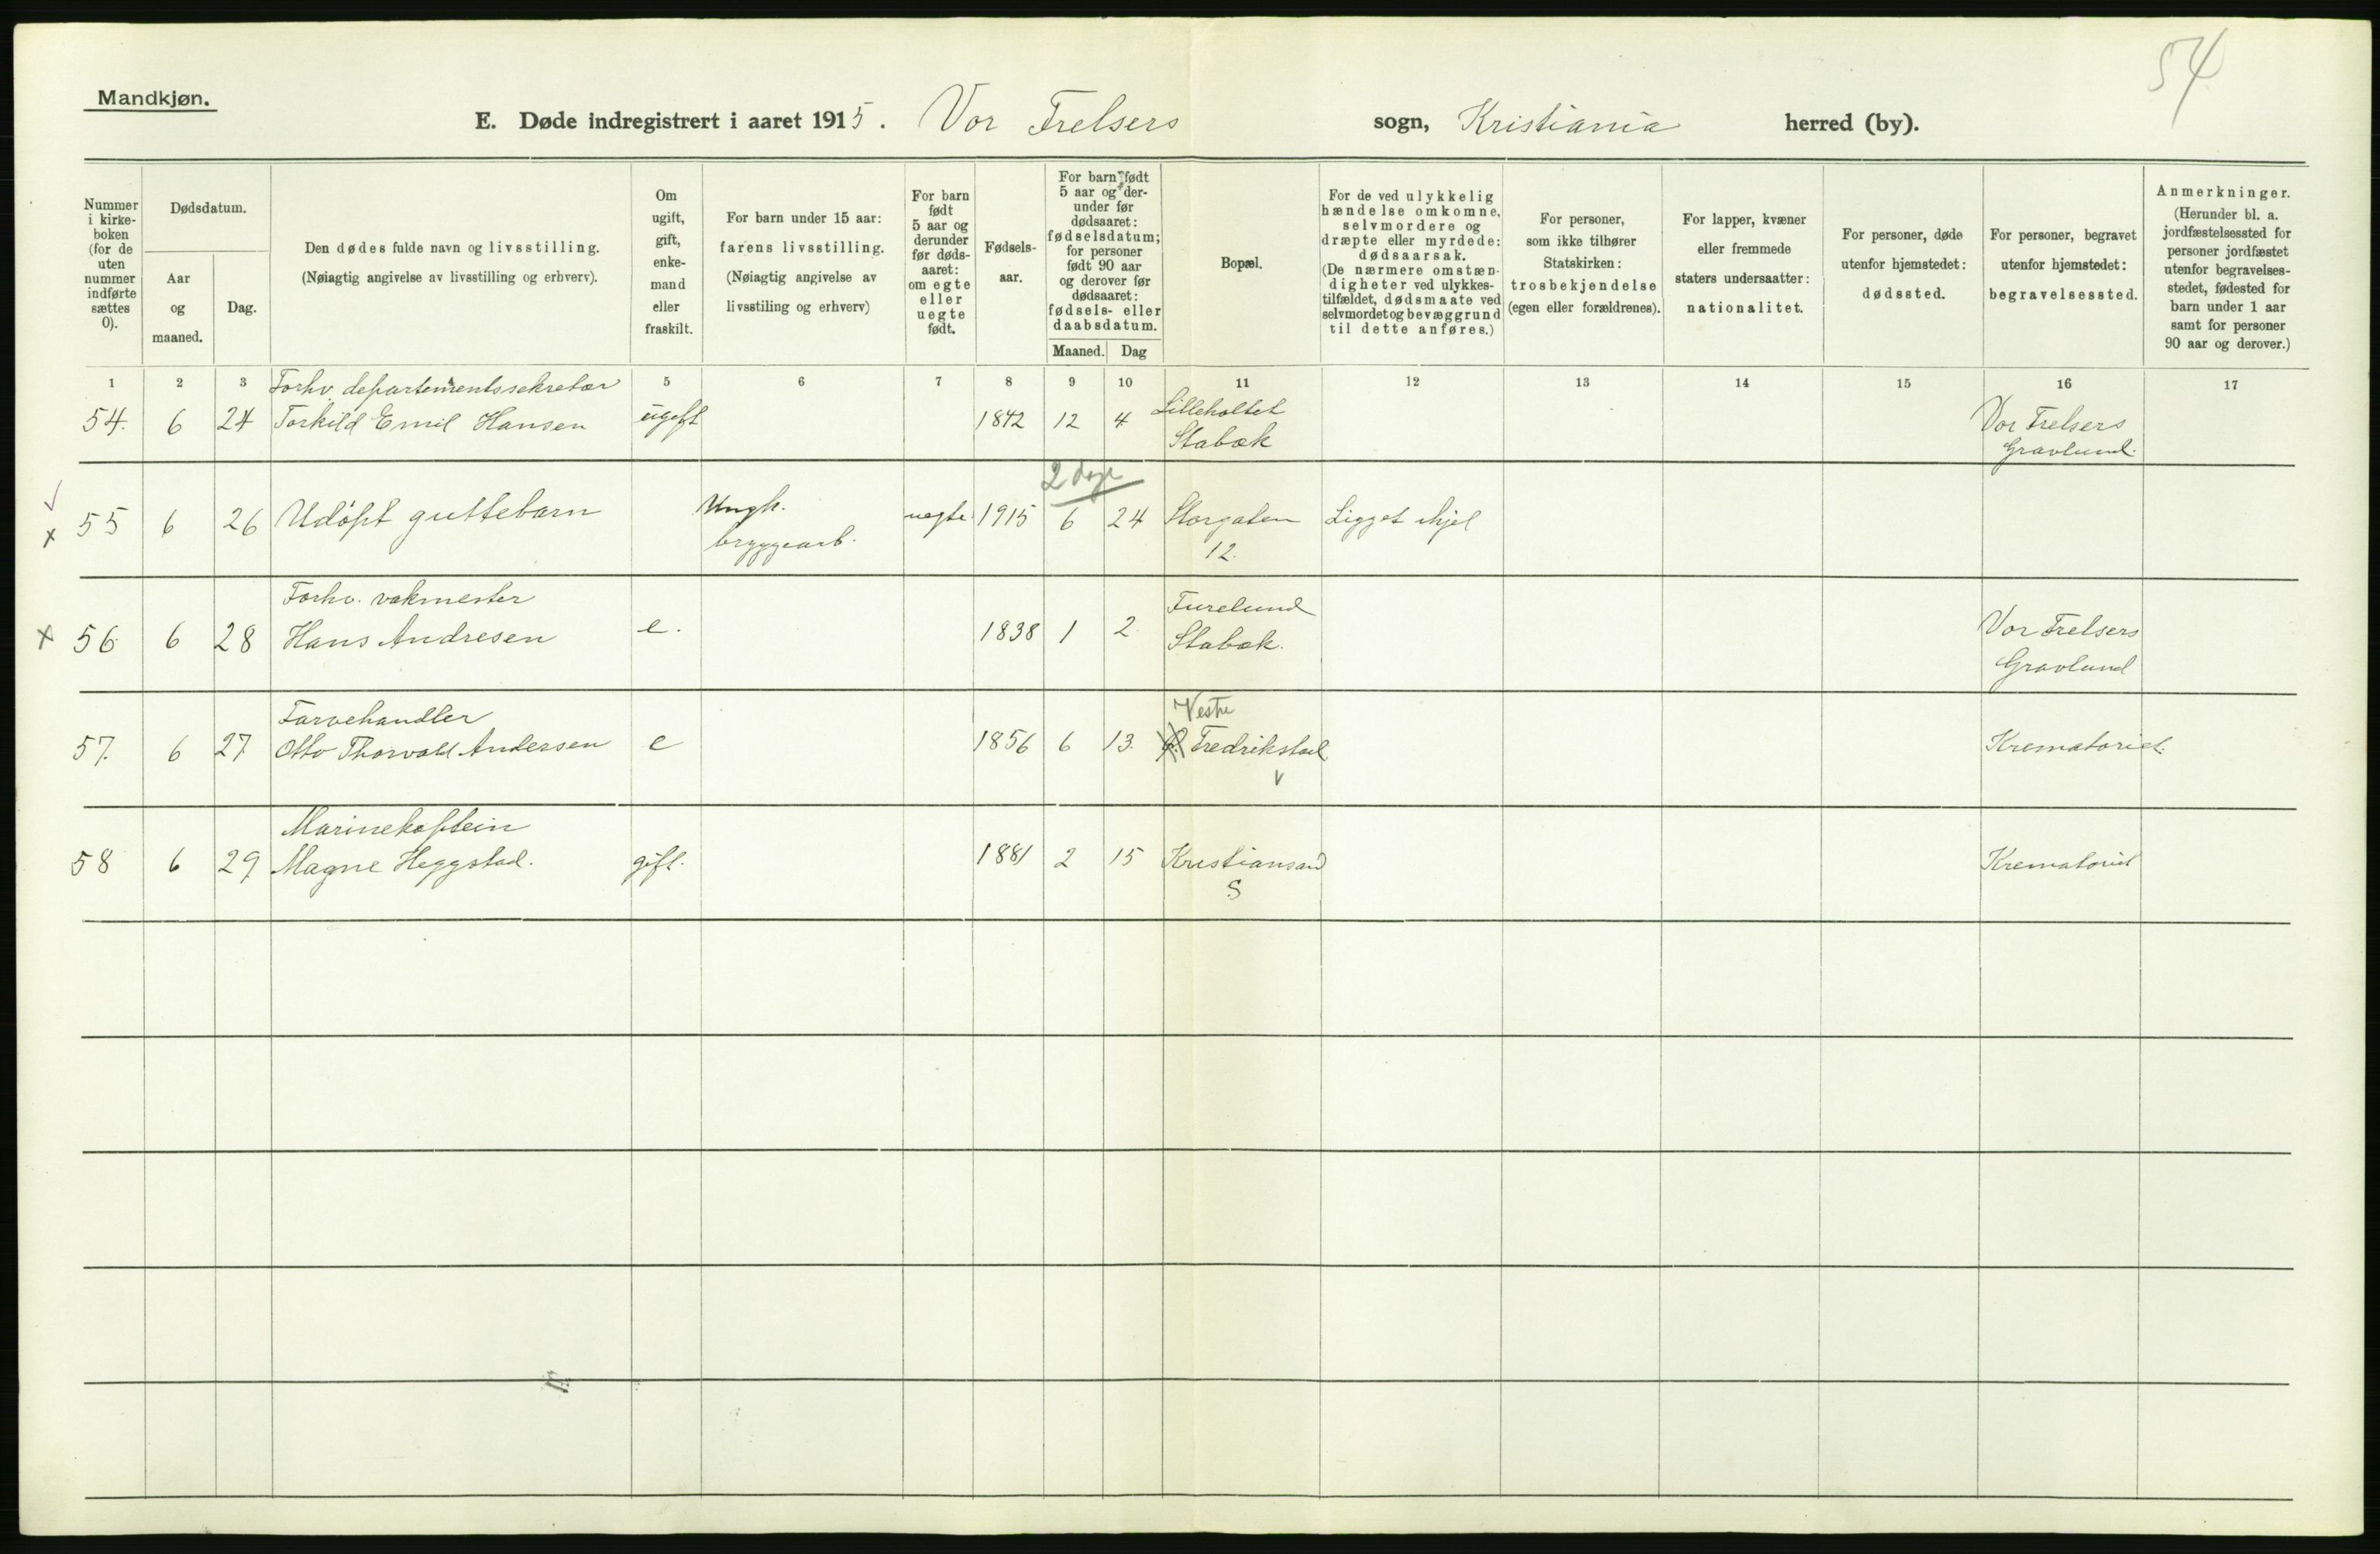 54
Mandkjøn.
E. Døde indregistrert i aaret 1915. Vor Frelsers sogn, Kristiania herred (by).
Nummer i kirke- boken (for de uten nummer indførte sættes 0).
Dødsdatum.
Aar og maaned.
Dag.
Den dødes fulde navn og livsstilling.
(Nøiagtig angivelse av livsstilling og erhverv).
Om ugift, gift, enke- mand eller fraskilt.
For barn under 15 aar: farens livsstilling.
(Nøiagtig angivelse av livsstiling og erhverv)
For barn født 5 aar og derunder før døds- aaret: om egte eller uegte født.
Fødsels- aar.
For barn født 5 aar og der- under før dødsaaret: fødselsdatum; for personer født 90 aar og derover før dødsaaret: fødsels- eller daabsdatum.
Maaned. Dag
Bopæl.
For de ved ulykkelig hændelse omkomne, selvmordere og dræpte eller myrdede: dødsaarsak.
(De nærmere omstæn- digheter ved ulykkes- tilfældet, dødsmaate ved selvmordet og bevæggrund til dette anføres.)
For personer, som ikke tilhører Statskirken: trosbekjendelse (egen eller forældrenes).
For lapper, kvæner eller fremmede staters undersaatter: nationalitet.
For personer, døde utenfor hjemstedet: dødssted.
For personer, begravet utenfor hjemstedet: begravelsessted.
Anmerkninger.
(Herunder bl. a. jordfæstelsessted for personer jordfæstet utenfor begravelses- stedet, fødested for barn under 1 aar samt for personer 90 aar og derover.)
1 2 3 5 6 7 8 9 10 11 12 13 14 15 16 17
Forhv. departementssekretær
54. 6 24 Torkild Emil Hansen ugift 1842 12 4 Lilleholtet Stabæk Vor Frelsers Gravlund.
2 dage
x 55 6 26 Udøpt guttebarn Ungk. bryggearb. uegte 1915 6 24 Storgaten 12. Ligget ihjel
Forhv. vakmester
x 56 6 28 Hans Andresen e. 1838 1 2. Furulund Stabæk. Vor Frelsers Gravlund
Farvehandler
Vestre
57. 6 27 Otto Thorvald Andersen e 1856 6 13. Fredrikstad Krematoriet.
Marinekaptein
58 6 29 Magne Heggstad. gift. 1881 2 15 Kristiansand S Krematoriet